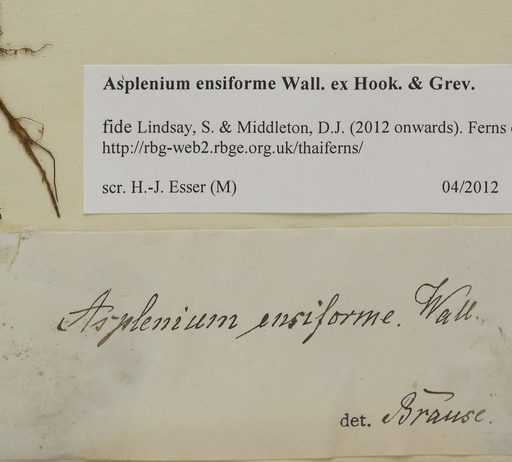 Asplenium ensiforme Wall. ex Hook. & Grev.
fide Lindsay, S. & Middleton, D.J. (2012 onwards). Ferns
http://rbg-web2.rbge.org.uk/thaiferns/
scr. H.-J. Esser (M) 04/2012
Asplenium ensiforme. Wall.
det. Brause.